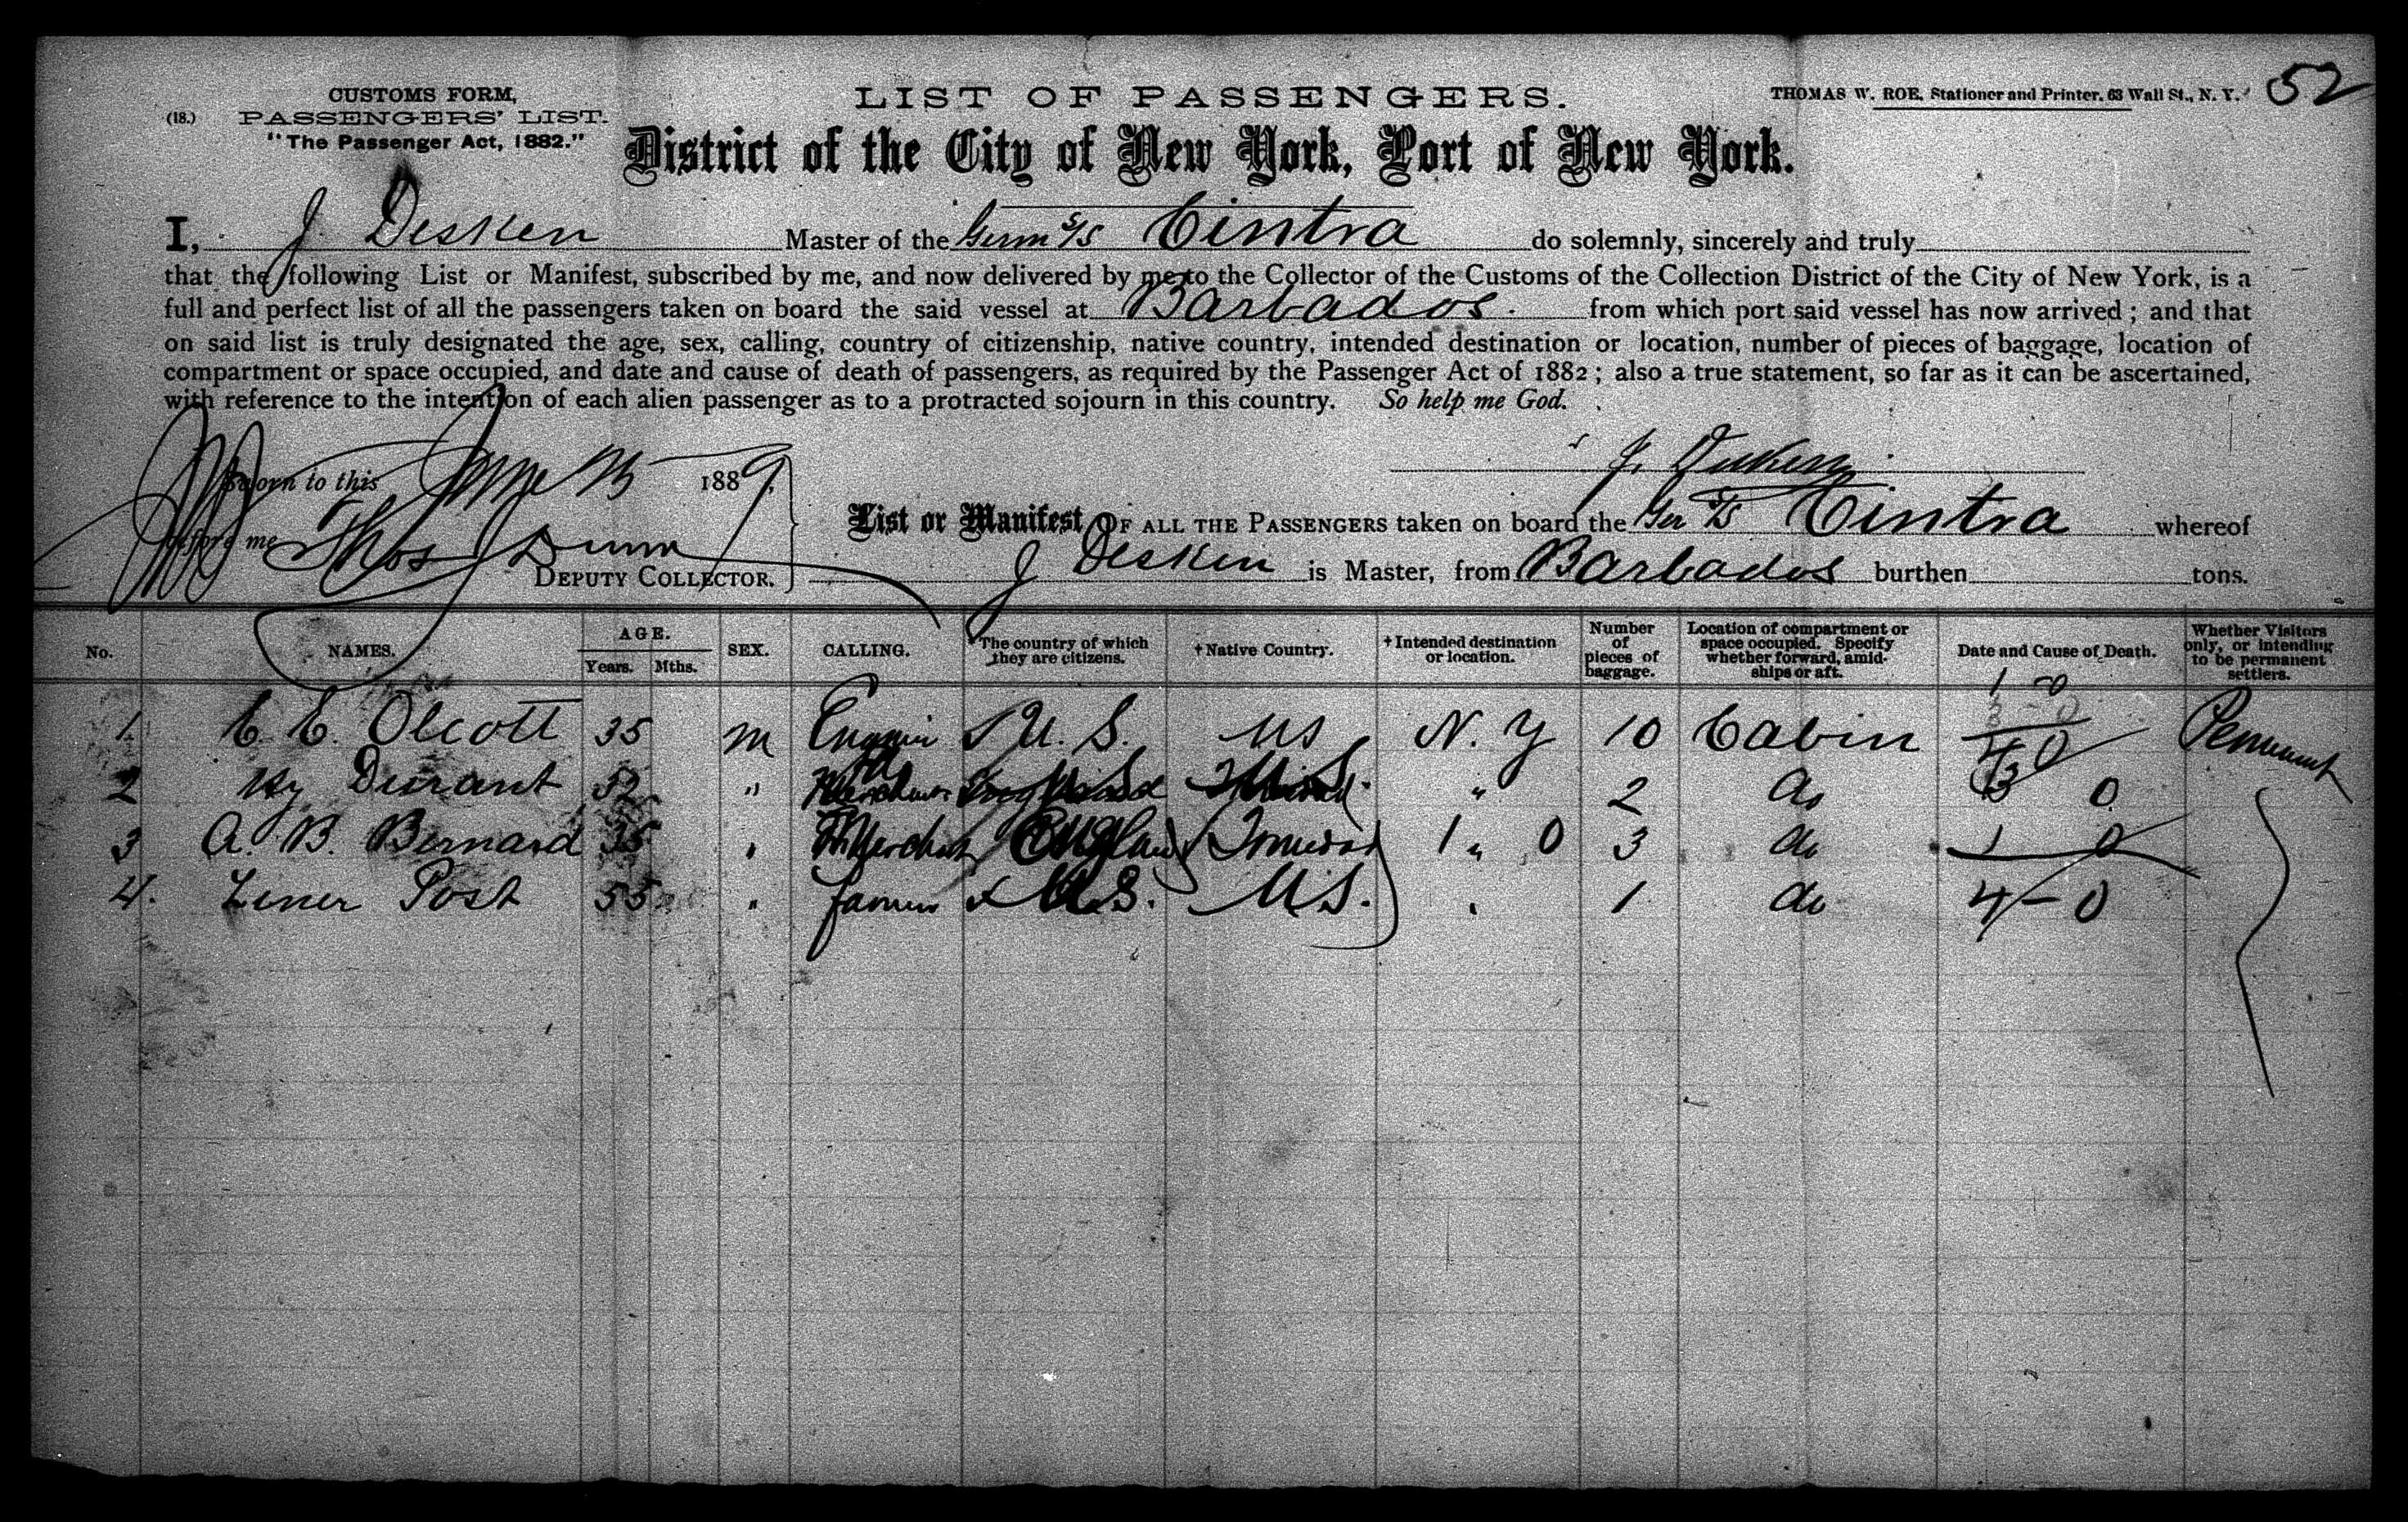 CUSTOMS FORM,
(18.) PASSENGERS' LIST.
"The Passenger Act, 1882."
LIST OF PASSENGERS.
THOMAS W. ROE, Stationer and Printer, 63 Wall St., N. Y.
52
District of the City of New York, Port of New York.
I, J Desken Master of the Germ S/S Cintra do solemnly, sincerely and truly
that the following List or Manifest, subscribed by me, and now delivered by me to the Collector of the Customs of the Collection District of the City of New York, is a
full and perfect list of all the passengers taken on board the said vessel at Barbados. from which port said vessel has now arrived; and that
on said list is truly designated the age, sex, calling, country of citizenship, native country, intended destination or location, number of pieces of baggage, location of
compartment or space occupied, and date and cause of death of passengers, as required by the Passenger Act of 1882; also a true statement, so far as it can be ascertained,
with reference to the intention of each alien passenger as to a protracted sojourn in this country. So help me God.
Sworn to this June 1889,
before me Thos Dunn
DEPUTY COLLECTOR.
List or Manifest OF ALL THE PASSENGERS taken on board the Ger S/S Cintra whereof
J Desken is Master, from Barbados burthen tons.
No. NAMES. AGE. Years. Mths. SEX. CALLING. *The country of which they are citizens. †Native Country. †Intended destination or location. Number of pieces of baggage. Location of compartment or space occupied. Specify whether forward, amidships or aft. Date and Cause of Death. Whether Visitors only, or intending to be permanent settlers.
1. E. E. Olcott 35 m U. S. US N. Y 10 Cabin
2 Hy Durant " " 2 do
3 A. B. Bernard 35 " Merchant England 3 do
4. Post 55 " farmer U.S. U.S. 1 do 4 - 0